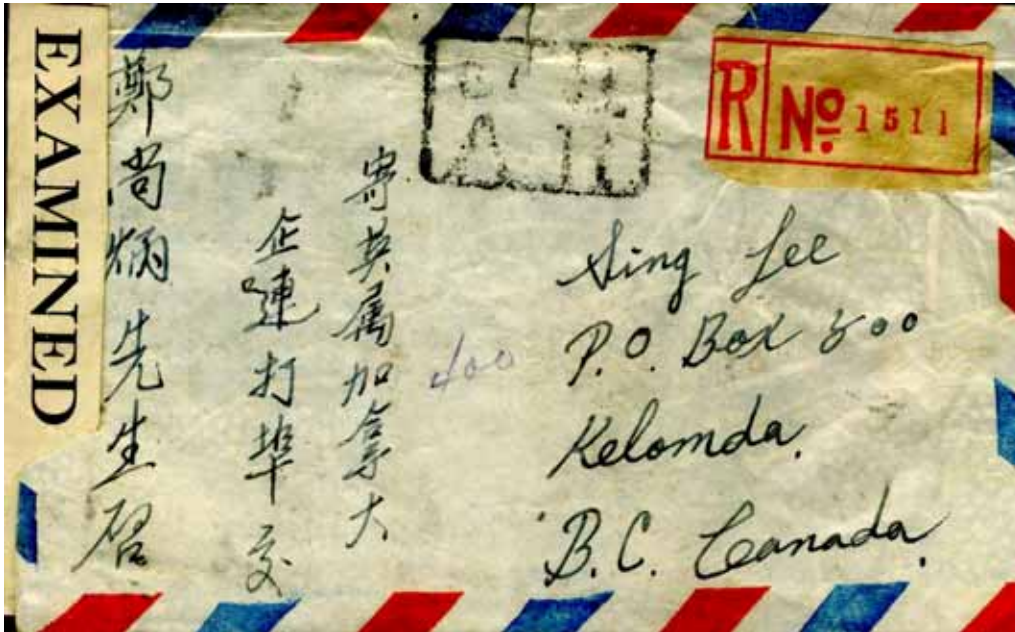 EXAMINED
R No 1511
Sing Lee
P.O. Box 500
Kelomda.
B.C. Canada.
400
寄英属加拿大
企連打埠交
鄭尚炳先生啓